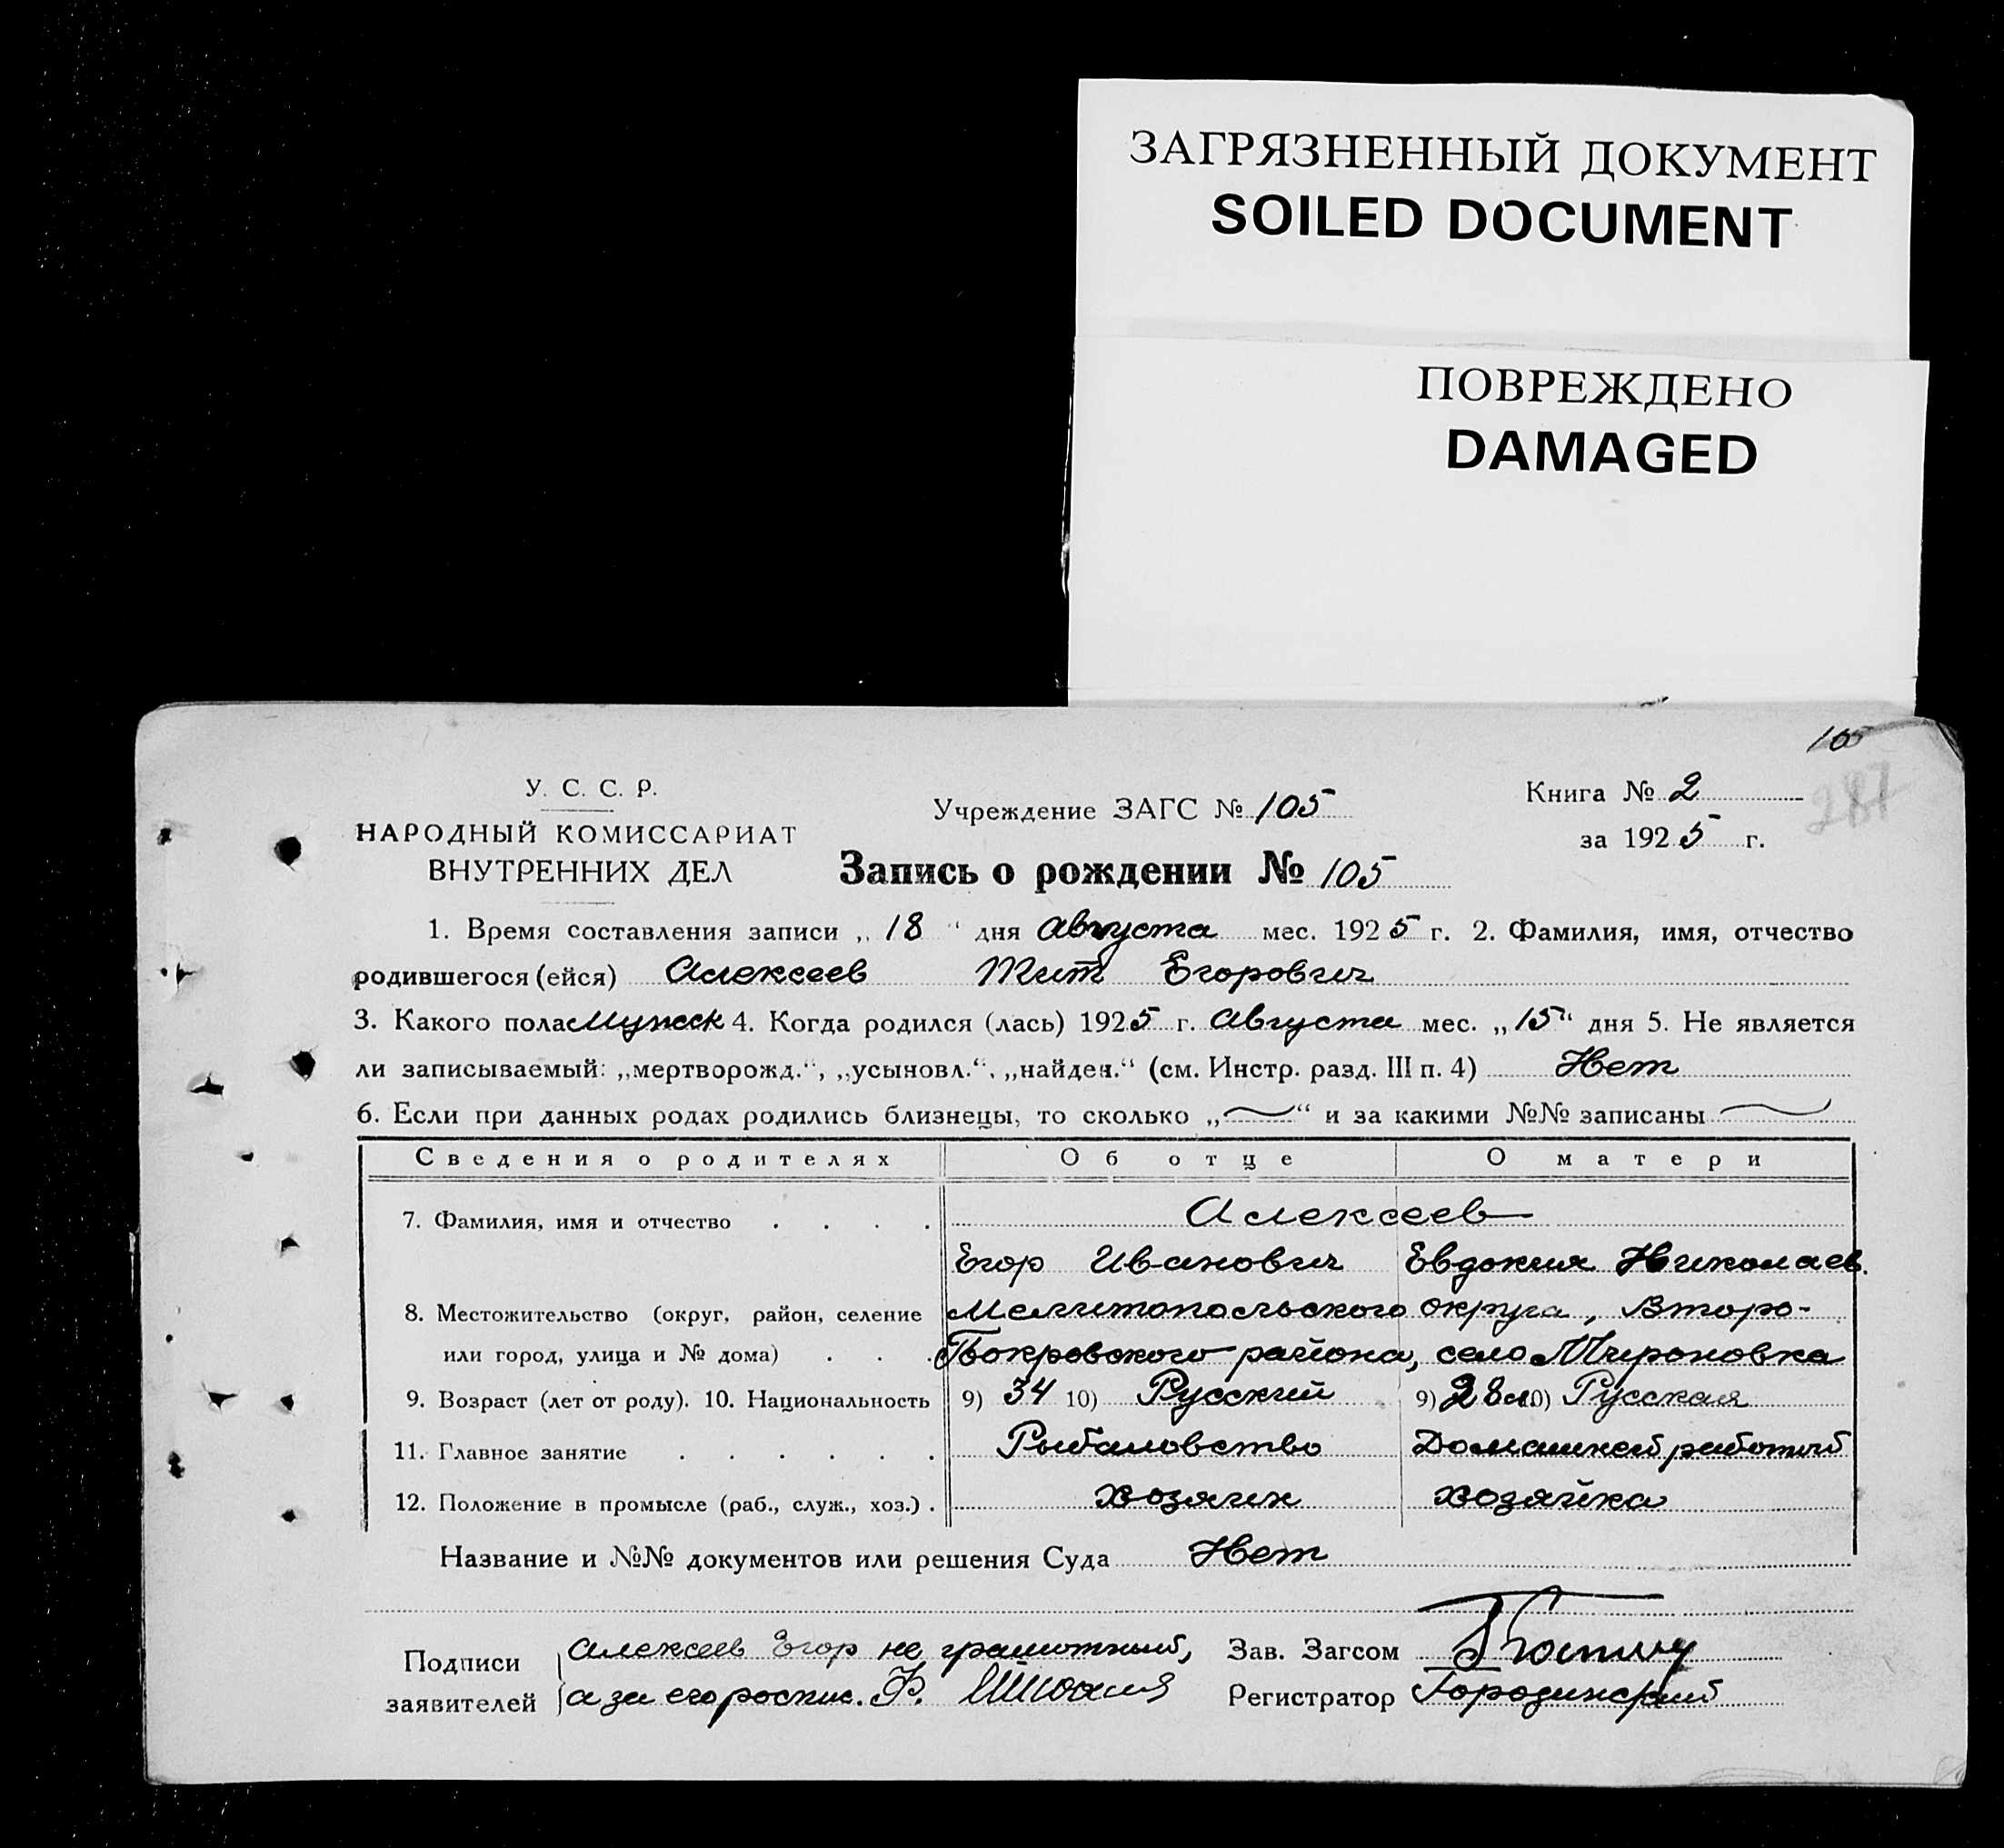 ЗАГРЯЗНЕННЫЙ ДОКУМЕНТ
SOILED DOCUMENT
ПОВРЕЖДЕНО
DAMAGED
105
287
У. С. С. Р.
НАРОДНЫЙ КОМИССАРИАТ
ВНУТРЕННИХ ДЕЛ
Учреждение ЗАГС № 105
Книга № 2
за 1925 г.
Запись о рождении № 105
1. Время составления записи „ 18 “ дня Августа мес. 1925 г. 2. Фамилия, имя, отчество
родившегося (ейся) Алексеев Тит Егорович
3. Какого пола Мужеск 4. Когда родился (лась) 1925 г. Августа мес. „15“ дня 5. Не является
ли записываемый: „мертворожд.“, „усыновл.“, „найден.“ (см. Инстр. разд. III п. 4) Нет
6. Если при данных родах родились близнецы, то сколько „—“ и за какими №№ записаны —
Сведения о родителях Об отце О матери
7. Фамилия, имя и отчество . . . . Алексеев
Егор Иванович Евдокия Николаев.
8. Местожительство (округ, район, селение Мелитопольского округа, Второ-
или город, улица и № дома) . . . Покровского района, село Мироновка
9. Возраст (лет от роду). 10. Национальность 9) 34 10) Русский 9) 28 л. 10) Русская
11. Главное занятие . . . . . . Рыбаловство Домашней работой
12. Положение в промысле (раб., служ., хоз.) . хозяин хозяйка
Название и №№ документов или решения Суда Нет
Подписи Алексеев Егор не грамотный, Зав. Загсом
заявителей а за его роспис. Ф. Регистратор Городинский